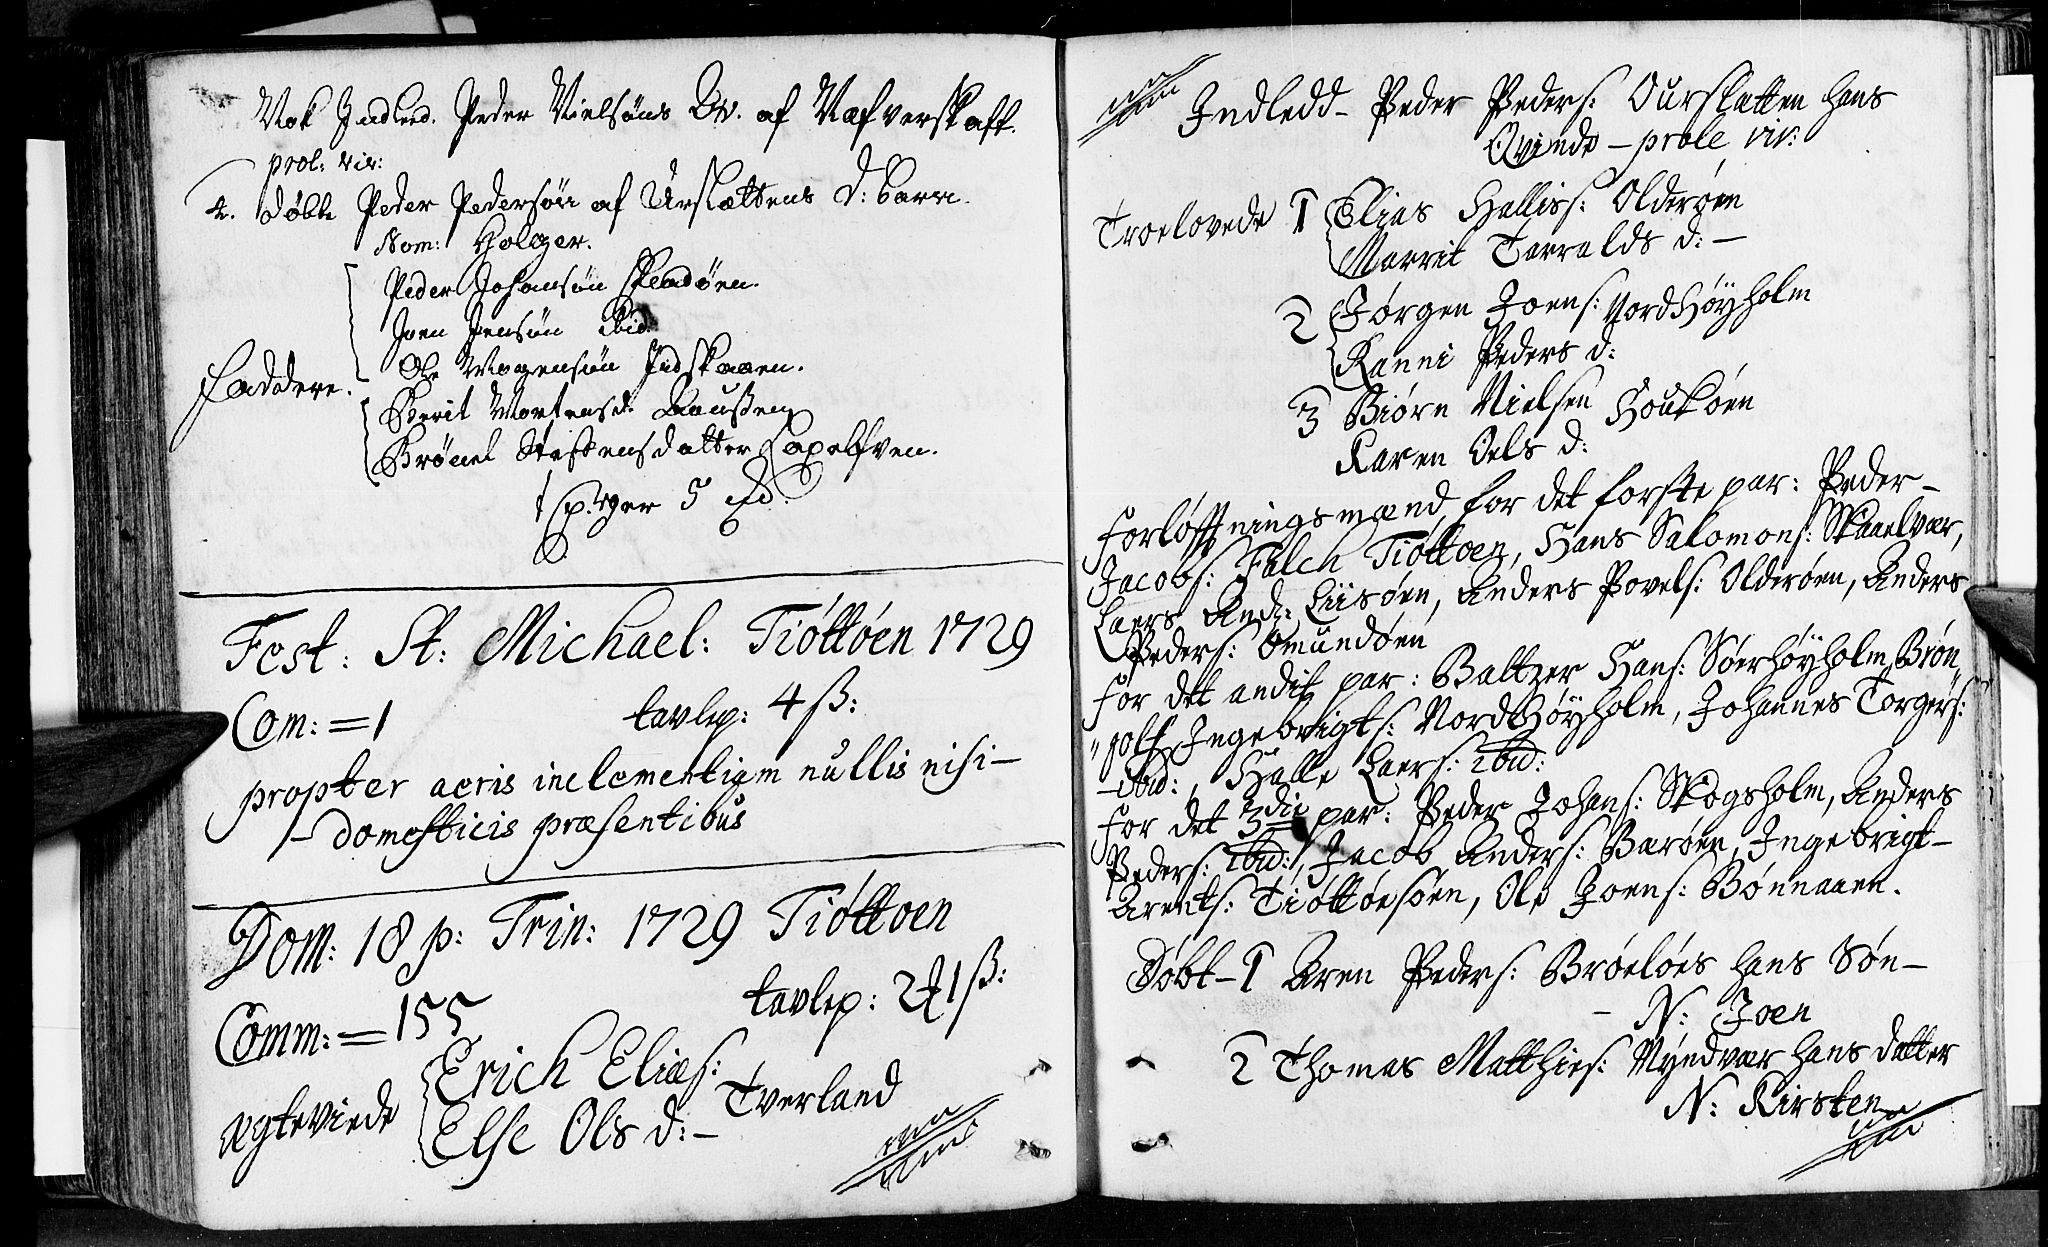 Nok Indleed. Peder Nielsøns Qv. af Nafverskaft.
prol: viv:
4. døbte Peder Pedersøn af Urslættens d: barn.
Nom: Holger.
Peder Johansøn
Joen Jensøn ibid.
Ole Mogensøn Indskaaen.
Faddere.
Berit Mortensd.
Brønel Steffensdatter
5
Fest: St: Michael: Tiøttøen 1729
Com: = 1 tavlep: 4 ß:
propter aeris inclementiam nullis nisi -
- domesticis præsentibus
Dom: 18 p: Trin: 1729 Tiøttoen
Comm: = 155 tavlep: 2 1 ß:
Erich Elias:
Ægteviede Tverland
Else Ols d: -
Indledd - Peder Peders: Ourslatten hans
Qvinde - prole viv:
Troelovede 1 Elias Halliss: Olderøen
Marrit Tarralds d: -
2 Jørgen Joens: Nordhøyholm
Ranni Peders d:
3 Biørn Nielsen Houkøen
Karen Oels d:
Forløftningsmænd for det forste par: Peder -
Jacobs: Falch Tiøttoen, Hans Salomons: Skaaelvær,
Laers And: Liisøen, Anders Povels: Olderøen, Anders
Peders: Omundøen
For det andit par: Baltzer Hans: Søerhøyholm, Brøn„
„polf Ingebrigts: Nordhøyholm, Johannes Torgers:
ibid:, Halle Laers: ibid:
For det 3die par: Peder Johans: Skogsholm, Anders
Peders: ibid:, Jacob Anders: Barøen, Ingebrigt -
Arents: Tiøttøesøen, Ole Joens: Bønnaaen.
Døbt - 1 Aren Peders: Brøeløes hans Søn -
- N: Joen
2 Thomas Matthies: Myndvær hans datter
N: Kirsten